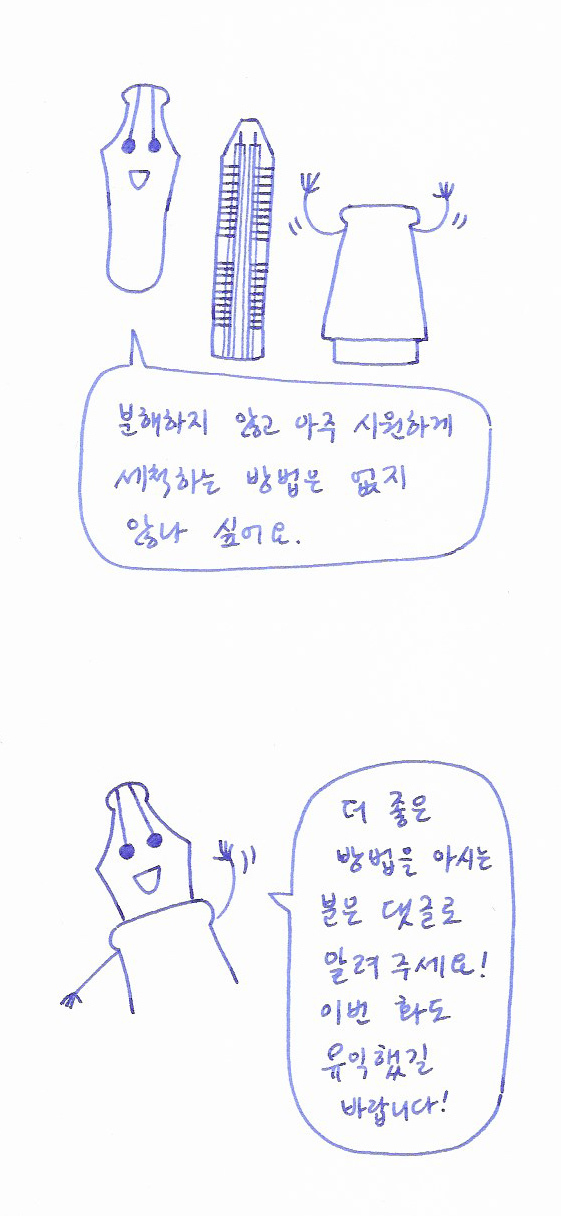 분해하지 않고 아주 시원하게
세척하는 방법은 없지
않나 싶어요.
더 좋은
방법을 아시는
분은 댓글로
알려 주세요!
이번 화도
유익했길
바랍니다!